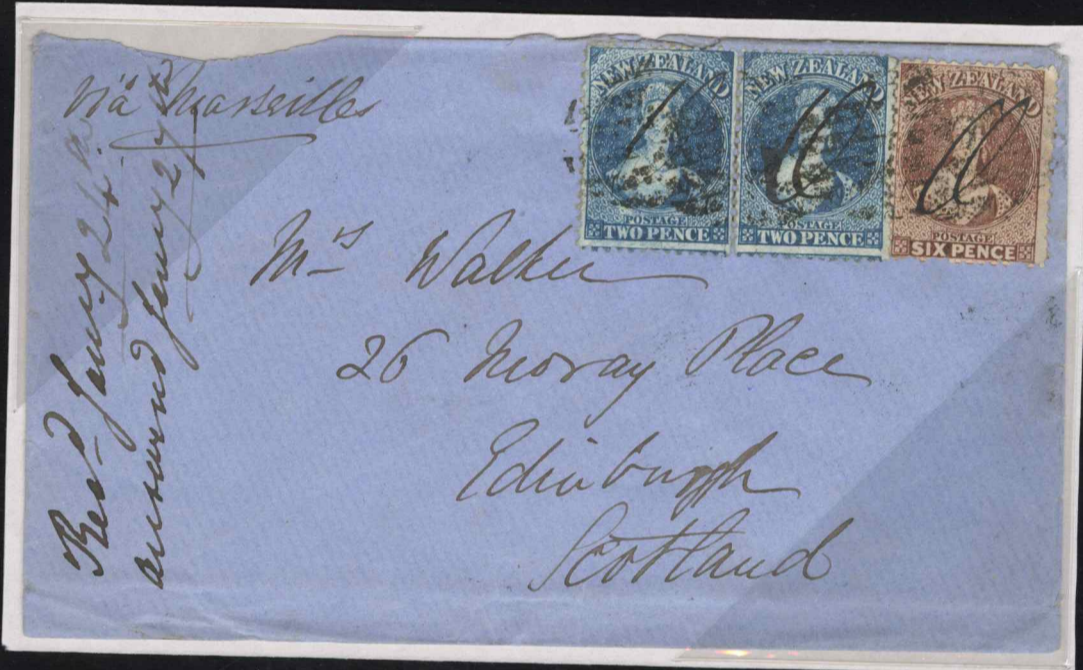 via Marseilles
NEW ZEALAND
POSTAGE
TWO PENCE
NEW ZEALAND
POSTAGE
TWO PENCE
NEW ZEALAND
POSTAGE
SIX PENCE
Mrs Walker
26 Moray Place
Edinburgh
Scotland
Recd January 24
answered January 27